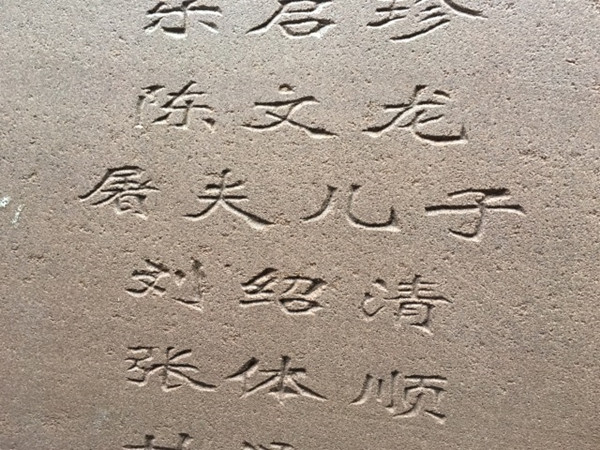 启珍
陈文龙
屠夫儿子
刘绍清
张体顺